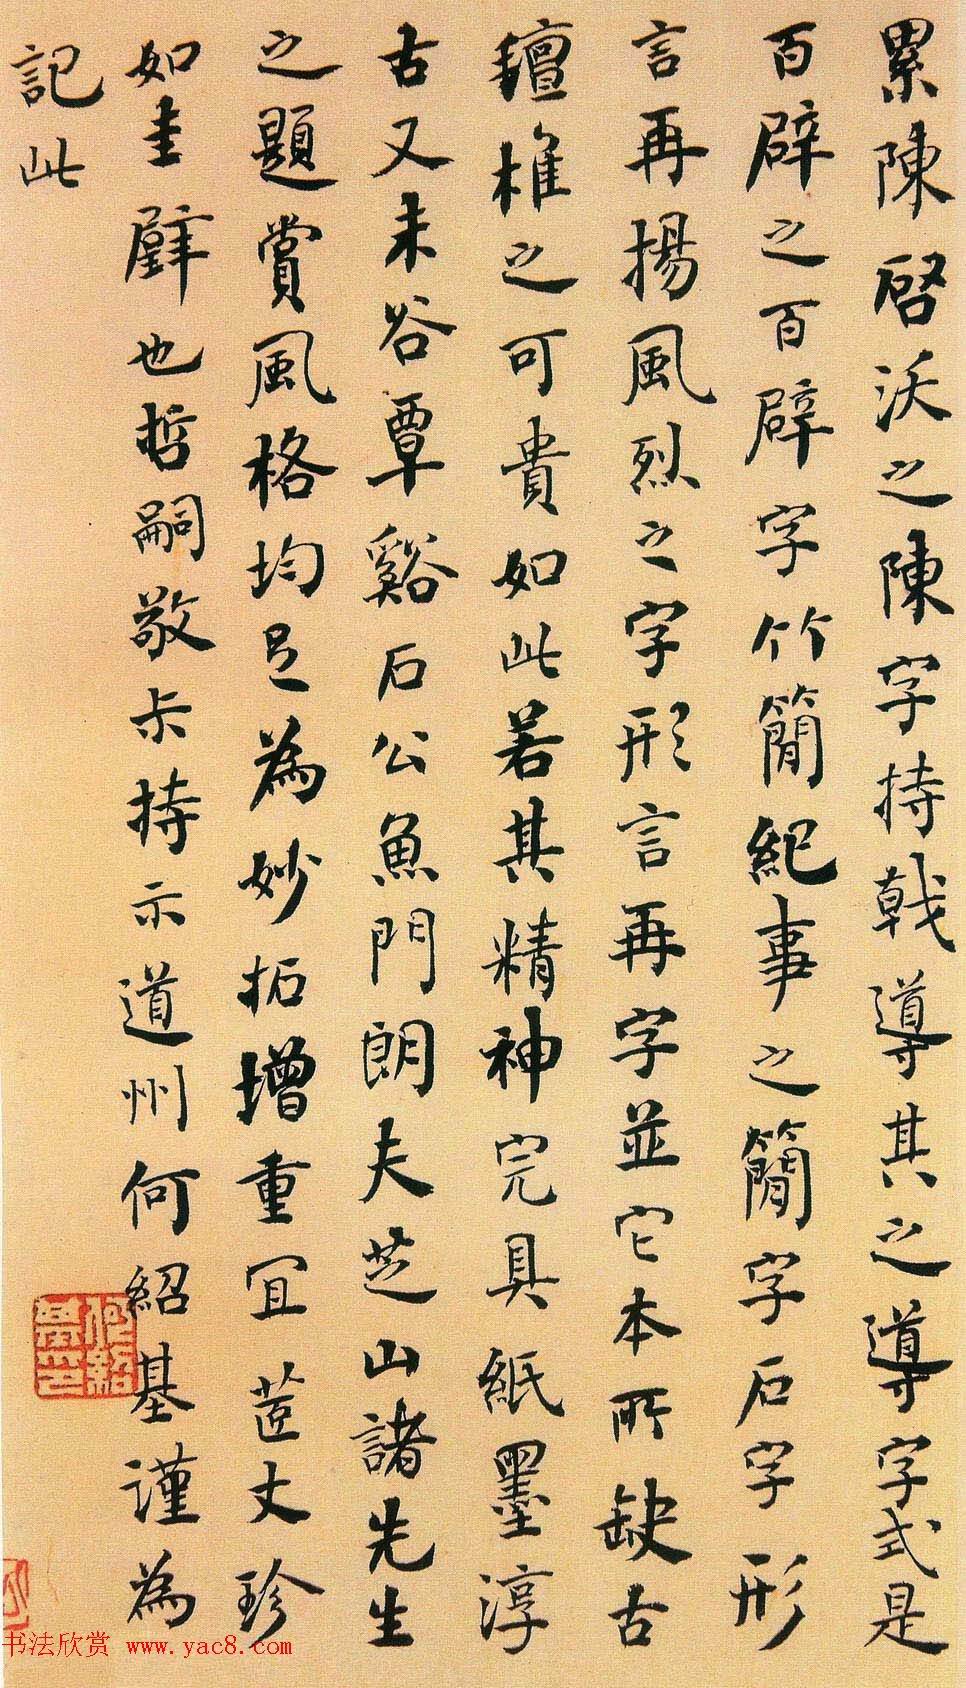 累陳啓沃之陳字持戟導其之導字式是
百辟之百辟字竹簡紀事之簡字石字形
言再揚風烈之字形言再字並它本所缺古
氈椎之可貴如此若其精神完具紙墨淳
古又未谷覃谿石公魚門朗夫芝山諸先生
之題賞風格均足為妙拓增重宜 丈珍
如圭璧也哲嗣敬示持示道州何紹基謹為
記此
书法欣赏 www.yac8.com